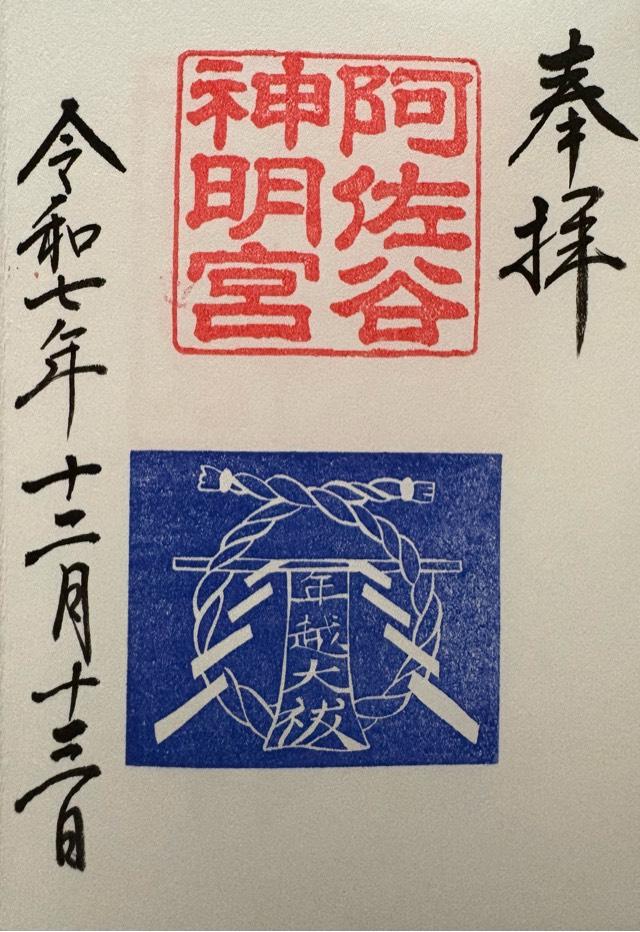 奉拝
阿佐谷
神明宮
年越大祓
令和七年十二月十三日